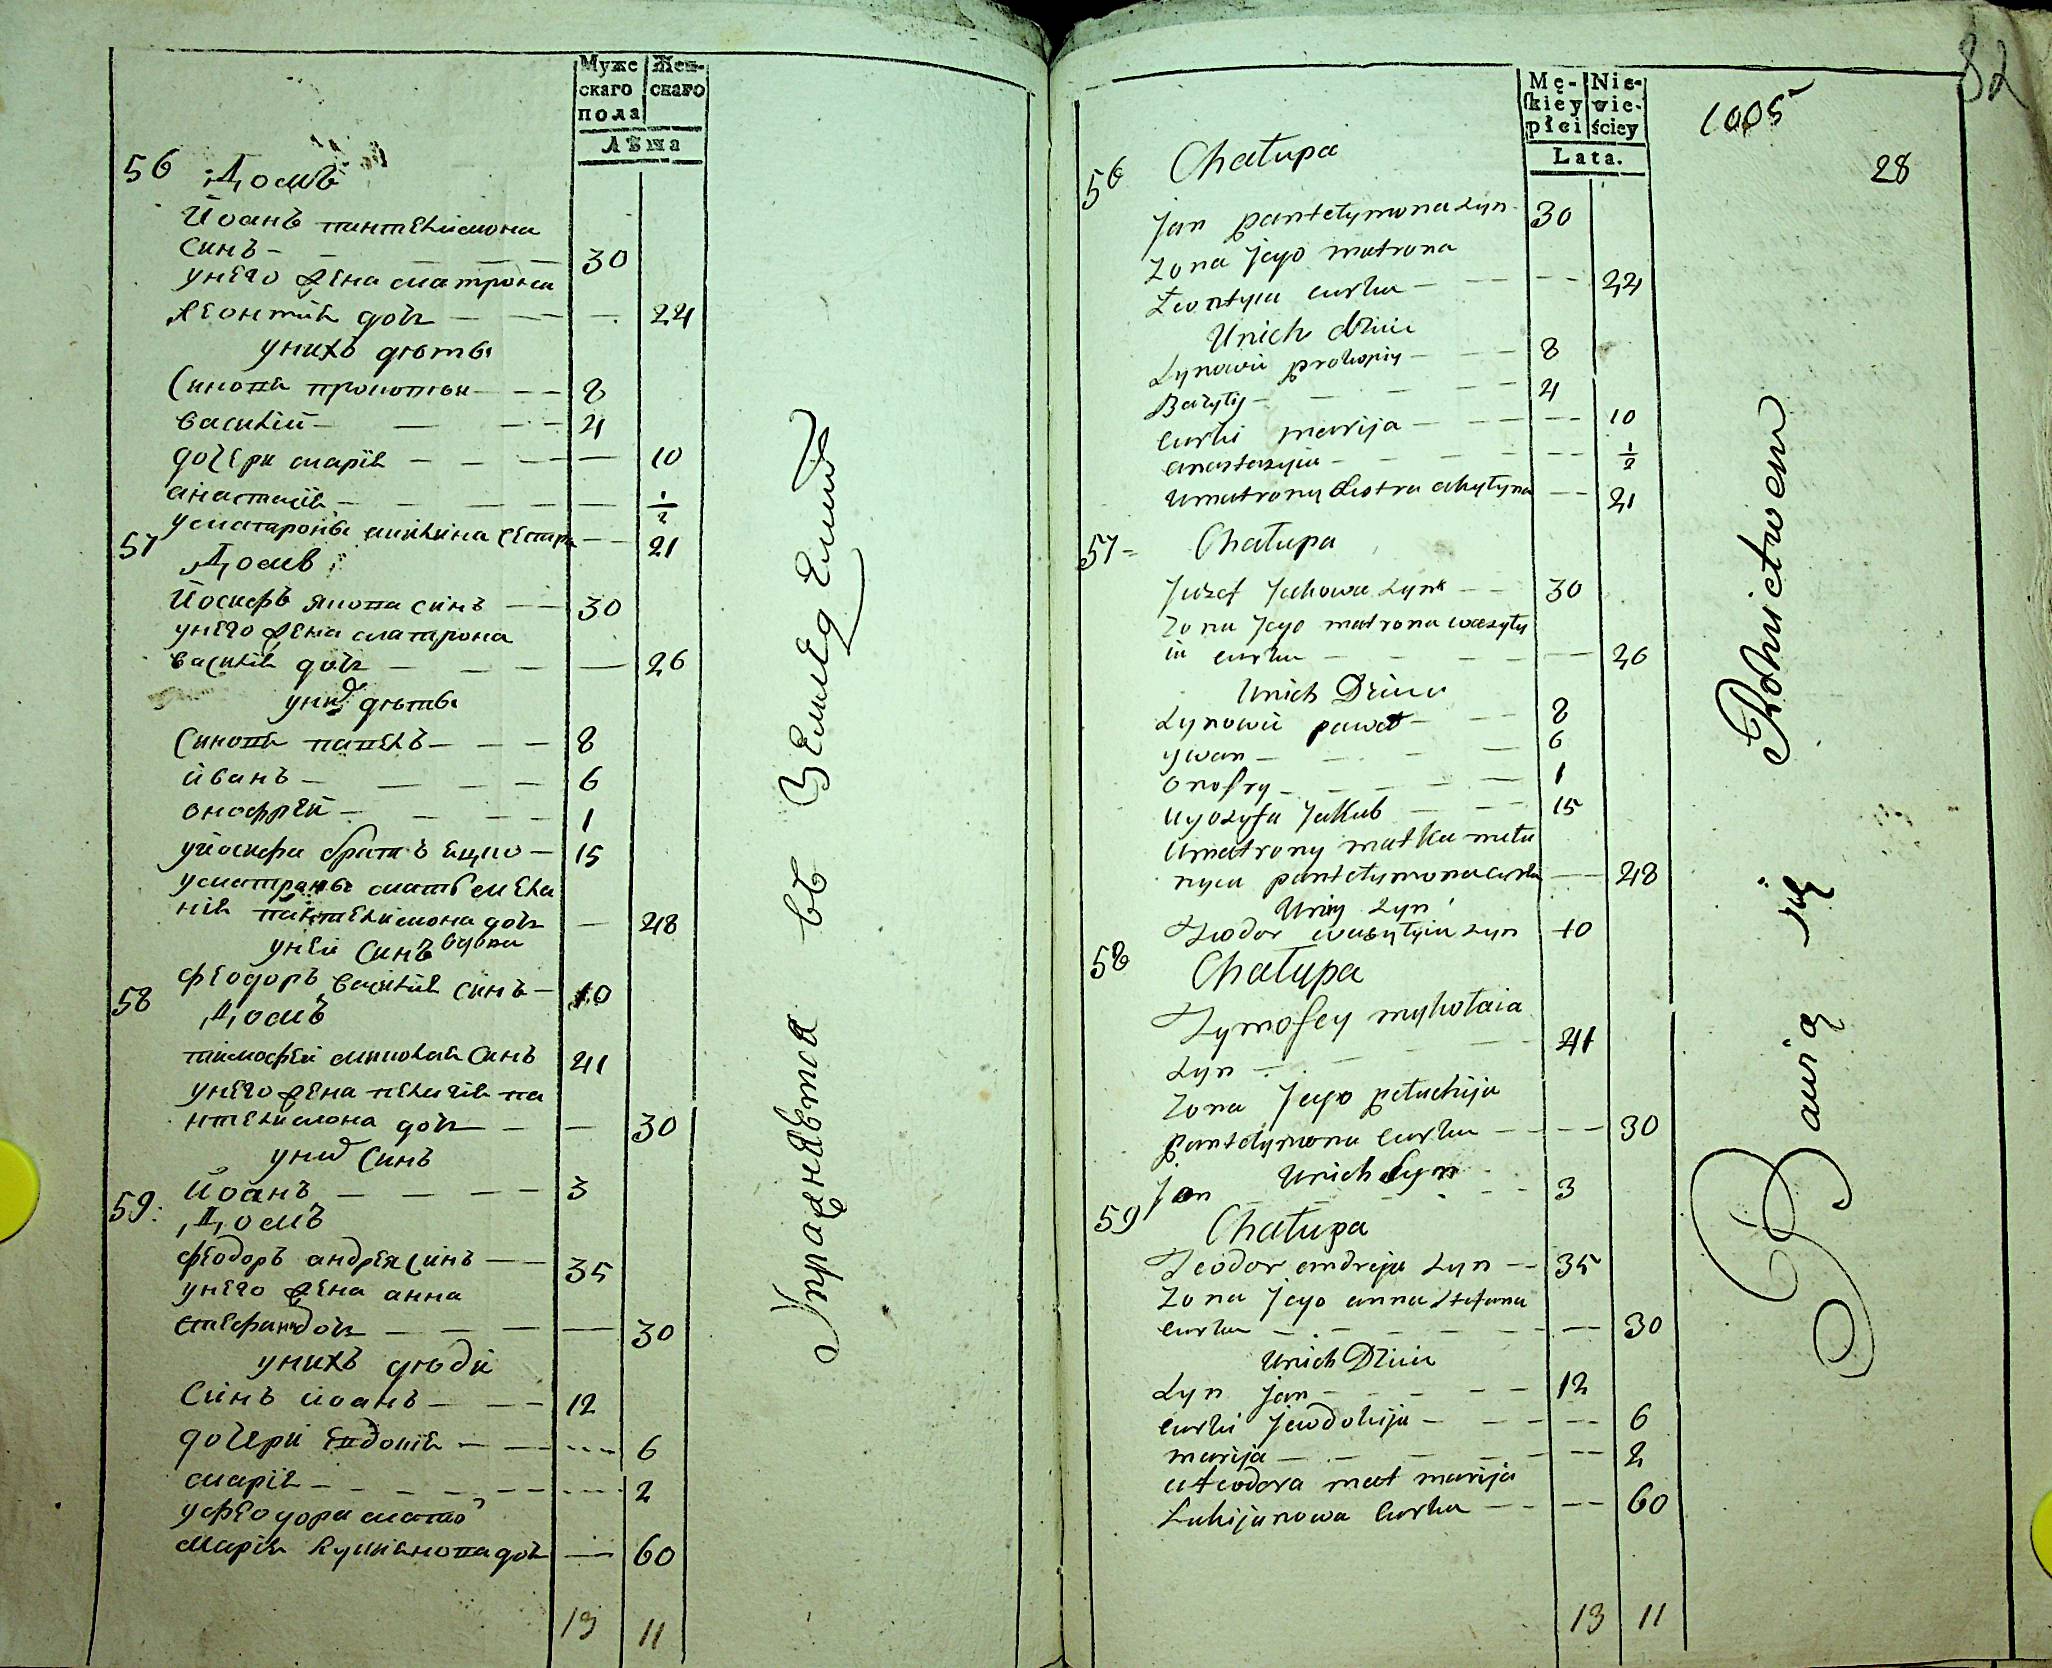 Муже
скаго
пола
Жен-
скаго
Лѣта
56 Домъ
Йоанъ пантелиймона
синъ - 30
унего жена матрона
леонтия дочь - 24
унихъ дѣты
синовя прокопий - 8
василий - 4
дочери мария - 10
анастасия - 1/2
уматроны сестра - 21
57 Домъ
Йосифъ якова синъ - 30
унего жена матрона
василия дочь - 26
унихъ дѣты
синовя павелъ - 8
иванъ - 6
онофрей - 1
уйосифа братъ - 15
уматроны мать мела
ния пантелимона дочь - 48
уней синъ
феодоръ василия синъ - 10
58 Домъ
тимофей миколая синъ 41
унего жена пелагия па
нтелимона дочь - 30
уних синъ
Йоанъ - 3
59: Домъ
феодоръ андрея синъ - 35
унего жена анна
стефана дочь - 30
унихъ дѣти
синъ йоанъ - 12
дочери евдокия - 6
мария - 2
уфеодора мать
мария лукиянова дочь - 60
13 11
Упражняется въ Земледелии
82
Mę-
skiey
płci
Nie-
wie-
ściey
Lata.
1005
28
56 Chałupa
Jan pantelymona Syn 30
Zona Jego matrona
Leontyia curka - 24
Unich dzieci
Synowie prokopiy - 8
Bazyly - 4
curki marija - 10
anastazyia - 1/2
Umatrony Siostra akylyna - 21
57 - Chałupa
Juzef Jakowa Syn - 30
Zona Jego matrona wasyly
ia curka - 26
Unich Dzieci
Synowie paweł - 8
ywan - 6
onofry - 1
Uyozyfa Jakub - 15
Umatrony matka mela
nyia pantelymona curka - 48
Uniey Syn
Teodor wasylyia Syn 10
58 Chałupa
Tymofey mykołaia
Syn - 41
Zona Jego pelachija
pantelymona curka - 30
Unich Syn
Jan - 3
59 Chałupa
Teodor andreja Syn - 35
Zona Jego anna Stefana
curka - 30
Unich Dzieci
Syn Jan - 12
curki Jewdokija - 6
marija - 2
uteodora mat marija
Lukijanowa curka - 60
13 11
Bawią się Rolnictwem